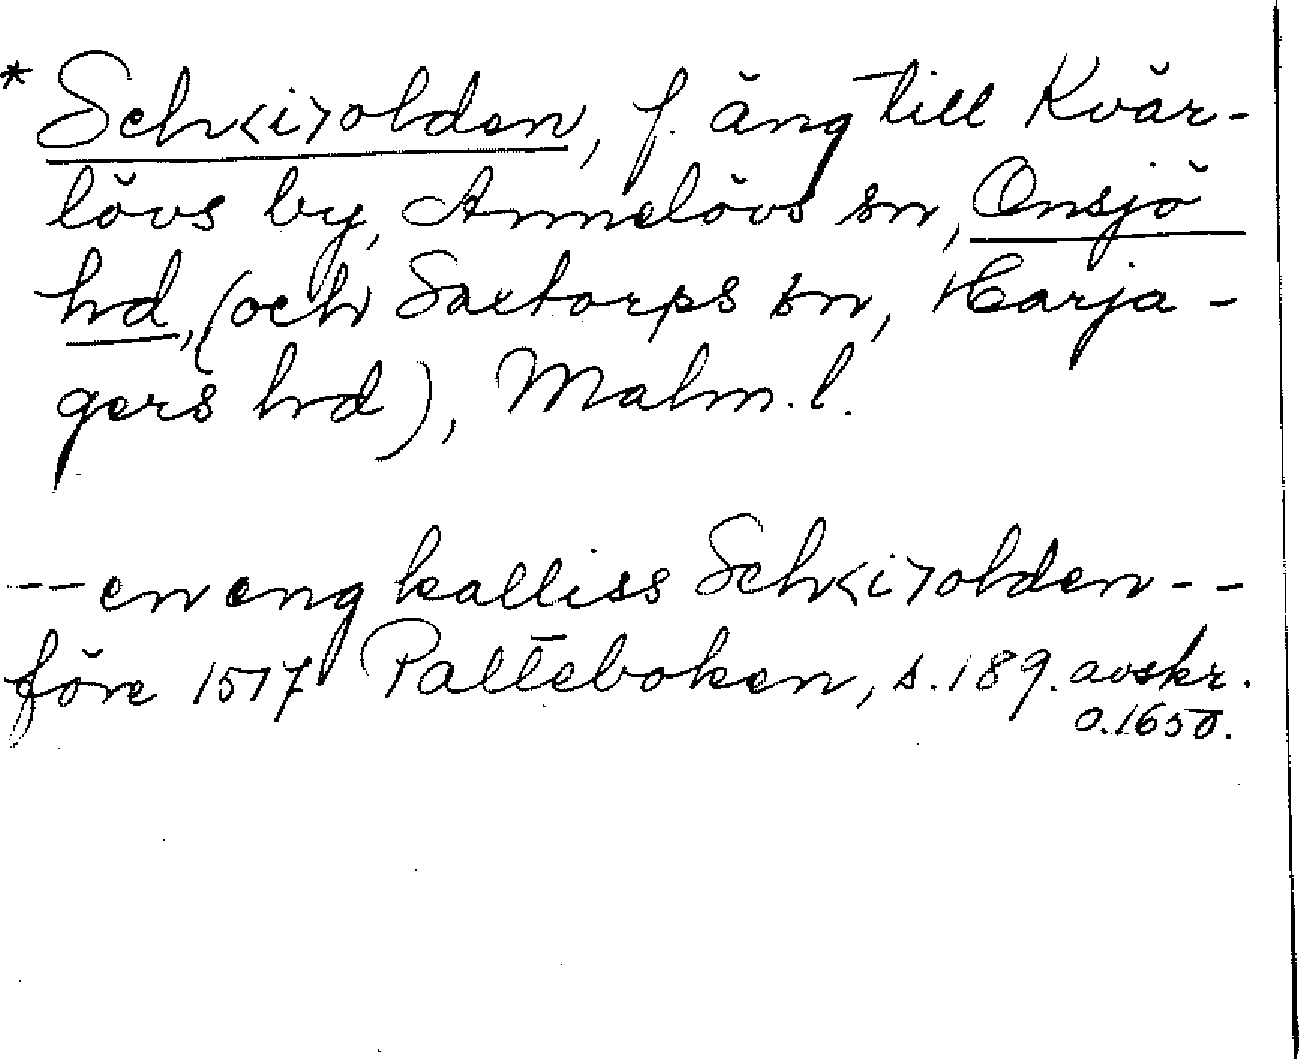 * Sch<i>olden, f. äng till Kvär-
lövs by, Annelövs sn, Onsjö
hd, (och Saxtorps sn, Harja-
gers hd), Malm. l.
-- en eng kalliss Sch<i>olden --
före 1517 Palteboken, s. 189. avskr.
o. 1650.